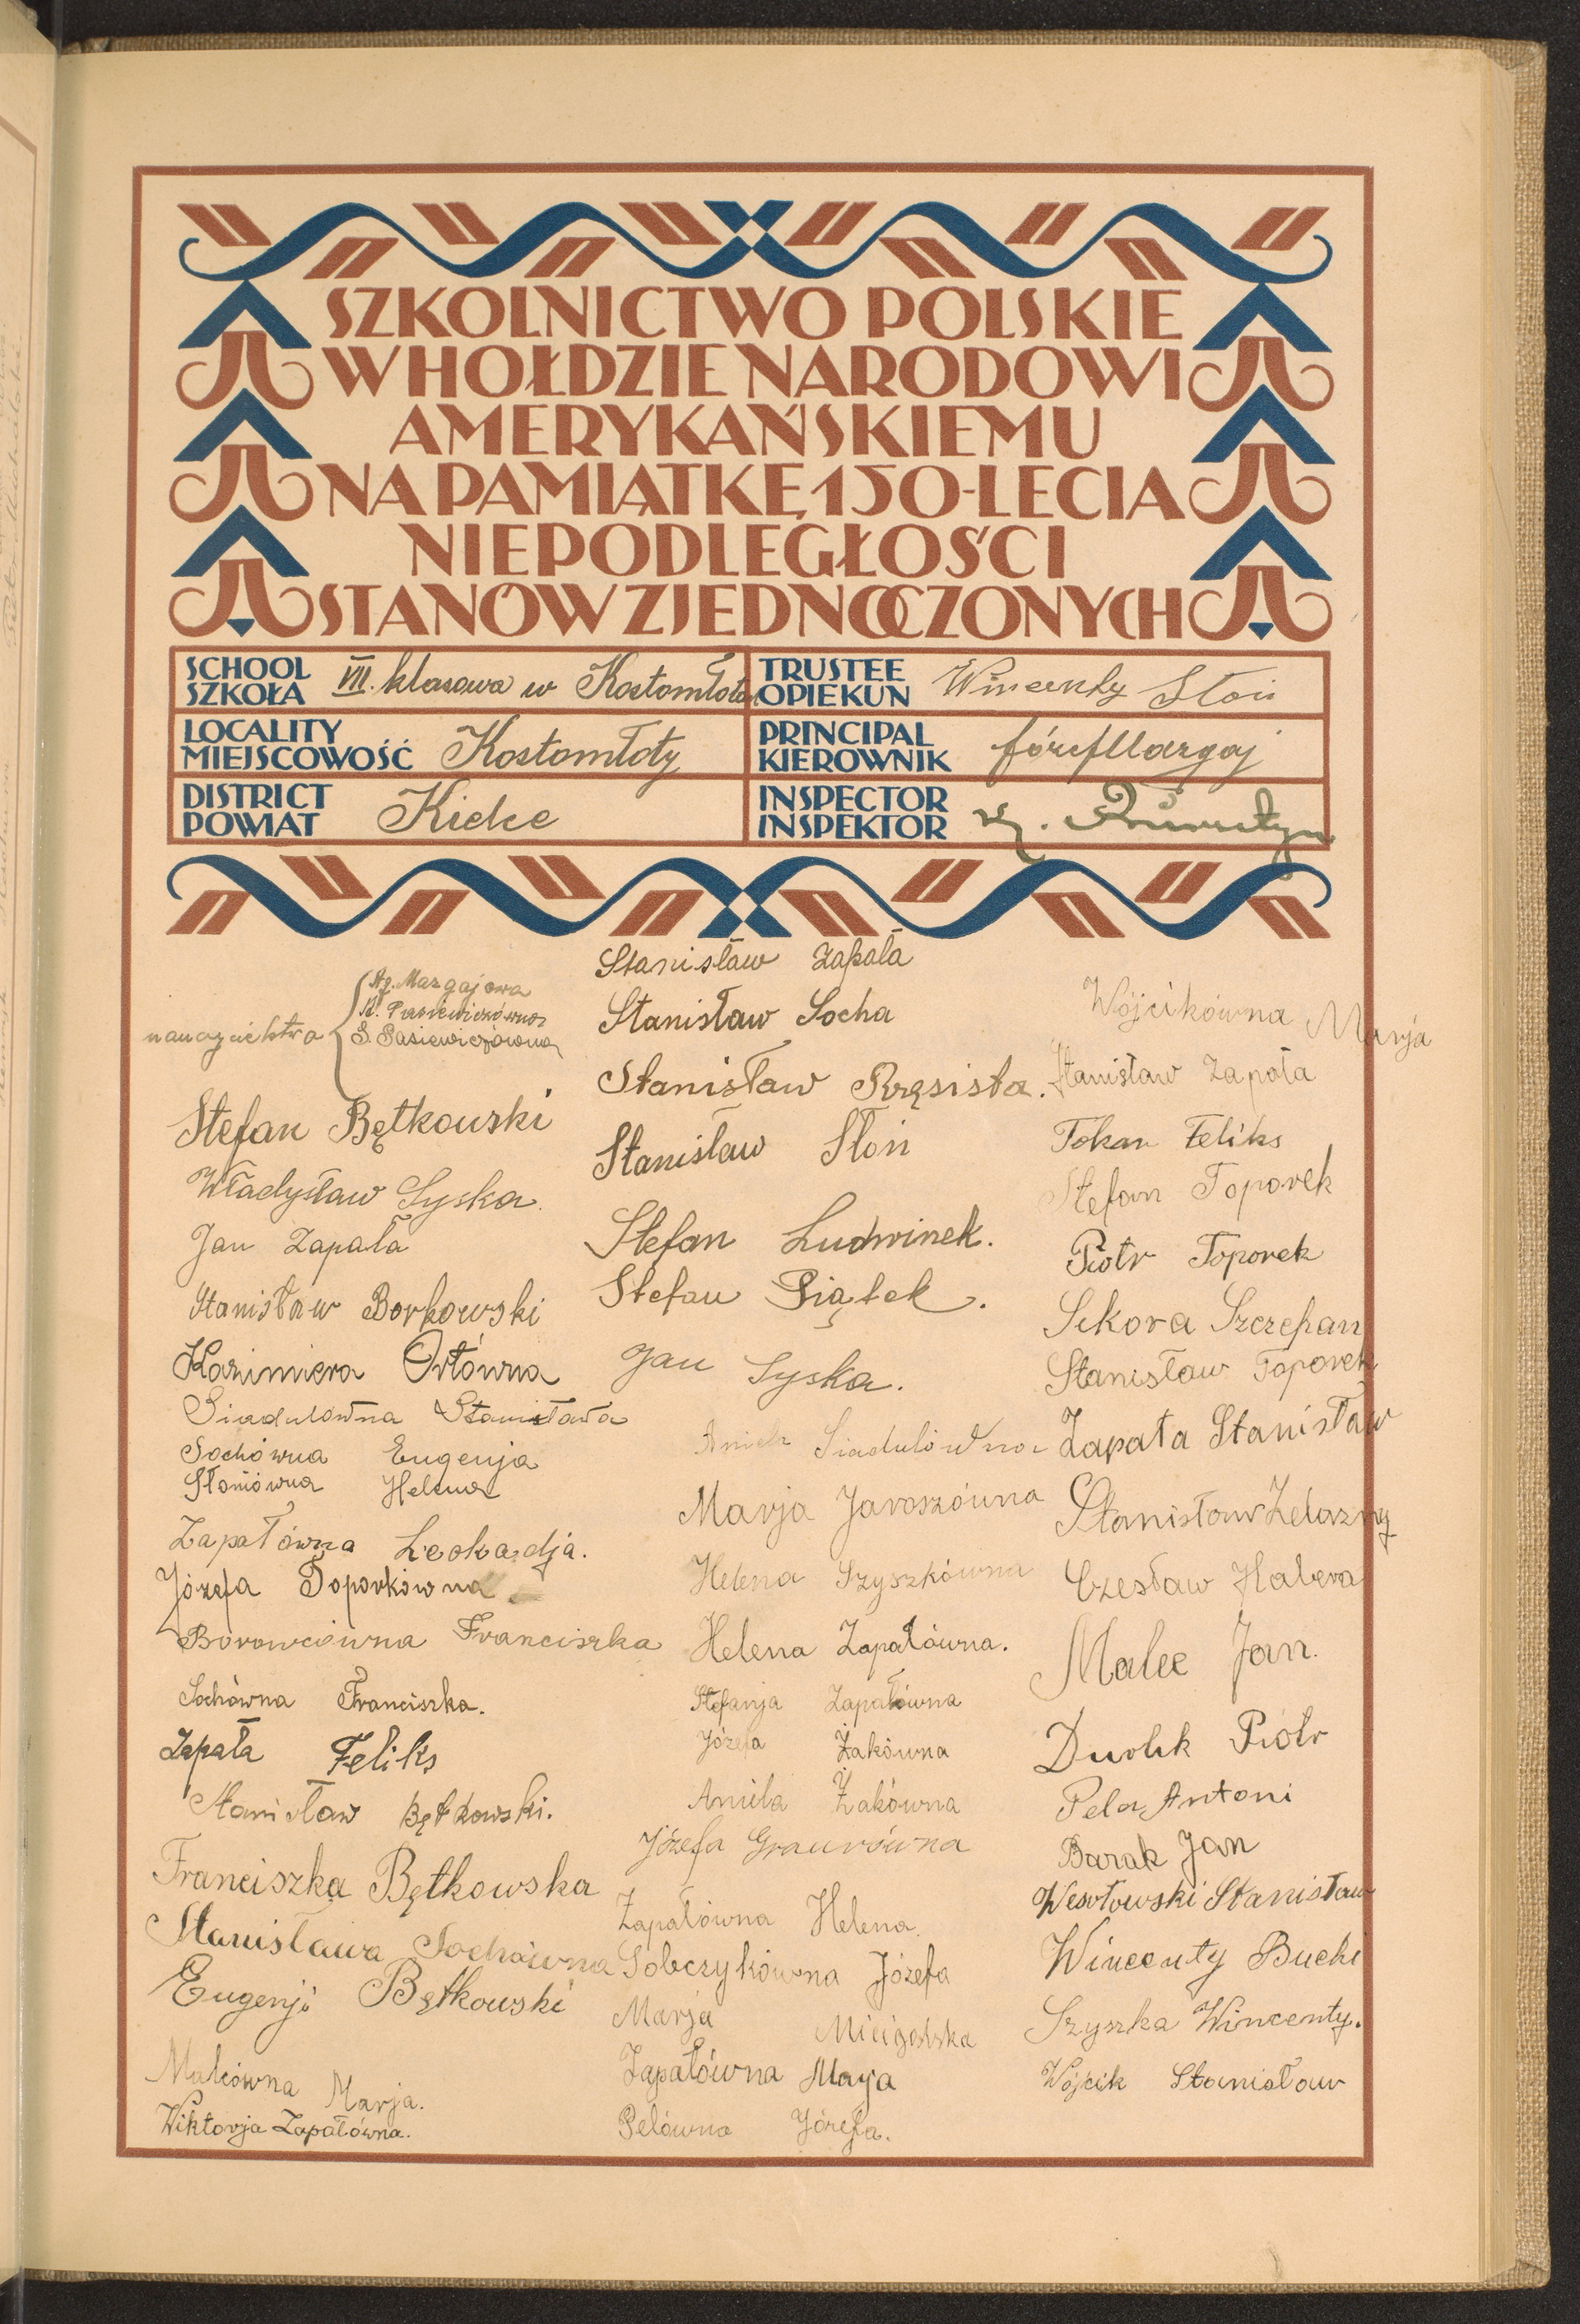 SZKOLNICTWO POLSKIE
W HOŁDZIE NARODOWI
AMERYKAŃSKIEMU
NA PAMIĄTKĘ 150-LECIA
NIEPODLEGŁOŚCI
STANÓW ZJEDNOCZONYCH
SCHOOL
SZKOŁA
VII. klasowa w Kostomłotach
LOCALITY
MIEJSCOWOŚĆ
Kostomłoty
DISTRICT
POWIAT
Kielce
TRUSTEE
OPIEKUN
Wincenty Słoń
PRINCIPAL
KIEROWNIK
Józef Mazgaj
INSPECTOR
INSPEKTOR
nauczycielstwo
Mazgajowa
S. Sasiewiczówna
Stefan Bętkowski
Władysław Syska.
Jan Zapała
Stanisław Borkowski
Kazimiera Ortówna
Siadulówna Stanisława
Sochówna Eugenja
Słoniówna Helena
Zapałówna Leokadja.
Józefa Toporkówna
Borowcówna Franciszka
Sochówna Franciszka.
Zapała Feliks
Stanisław Bętkowski.
Franciszka Bętkowska
Stanisława Sochówna
Eugenji Bętkowski
Malcówna Marja.
Wiktorja Zapałówna.
Stanisław Zapała
Stanisław Socha
Stanisław Rzęsista.
Stanisław Słoń
Stefan Ludwinek.
Stefan Piątek.
Jan Syska.
Aniela Siadulówna
Marja Jaroszówna
Helena Szyszkówna
Helena Zapałówna.
Stefanja Zapałówna
Józefa Żakówna
Aniela Żakówna
Józefa Graurówna
Zapałówna Helena.
Sobczykówna Józefa
Marja Mićigolska
Zapałówna Marja
Pelówna Józefa.
Wójcikówna Marja
Stanisław Zapała
Tokar Feliks
Stefan Toporek
Piotr Toporek
Sikora Szczepan
Stanisław Toporek
Zapała Stanisław
Stanisław Żelazny
Czesław Habera
Malec Jan.
Durlik Piotr
Pela Antoni
Barak Jan
Wesołowski Stanisław
Wincenty Buchi
Szyszka Wincenty.
Wójcik Stanisław